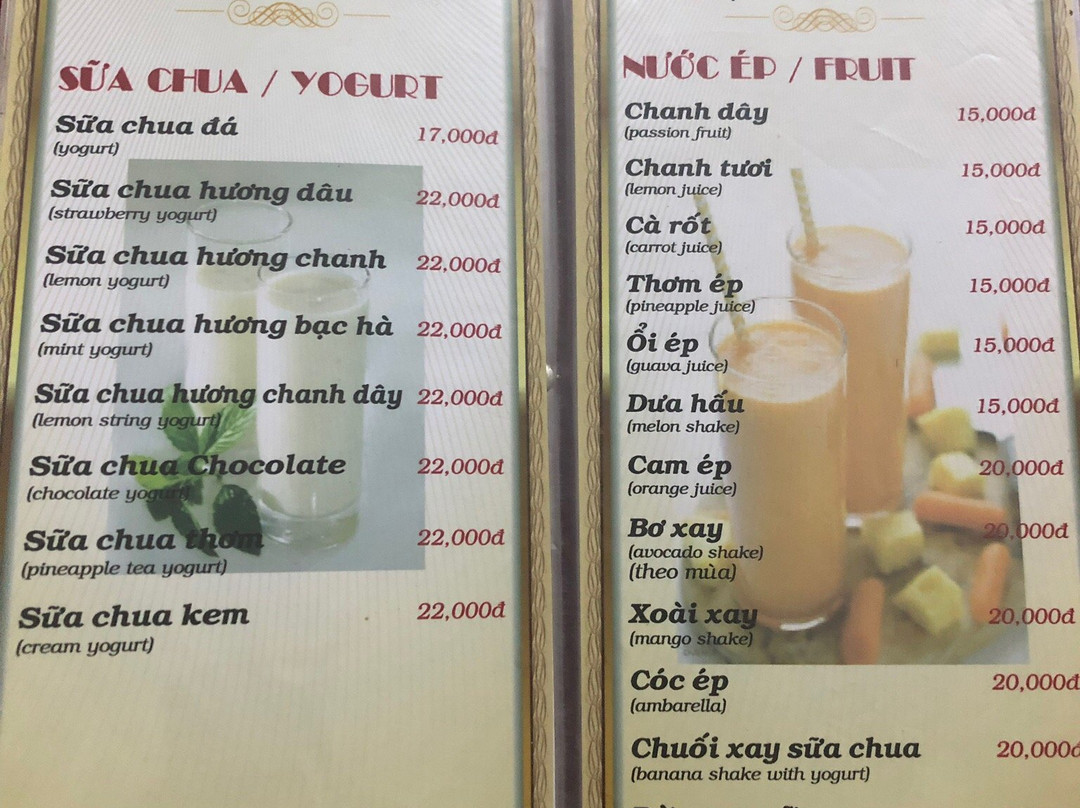 SỮA CHUA / YOGURT
Sữa chua đá 17,000đ
(yogurt)
Sữa chua hương dâu 22,000đ
(strawberry yogurt)
Sữa chua hương chanh 22,000đ
(lemon yogurt)
Sữa chua hương bạc hà 22,000đ
(mint yogurt)
Sữa chua hương chanh dây 22,000đ
(lemon string yogurt)
Sữa chua Chocolate 22,000đ
(chocolate yogurt)
Sữa chua thơm 22,000đ
(pineapple tea yogurt)
Sữa chua kem 22,000đ
(cream yogurt)
NƯỚC ÉP / FRUIT
Chanh dây 15,000đ
(passion fruit)
Chanh tươi 15,000đ
(lemon juice)
Cà rốt 15,000đ
(carrot juice)
Thơm ép 15,000đ
(pineapple juice)
Ổi ép 15,000đ
(guava juice)
Dưa hấu 15,000đ
(melon shake)
Cam ép 20,000đ
(orange juice)
Bơ xay 20,000đ
(avocado shake)
(theo mùa)
Xoài xay 20,000đ
(mango shake)
Cóc ép 20,000đ
(ambarella)
Chuối xay sữa chua 20,000đ
(banana shake with yogurt)